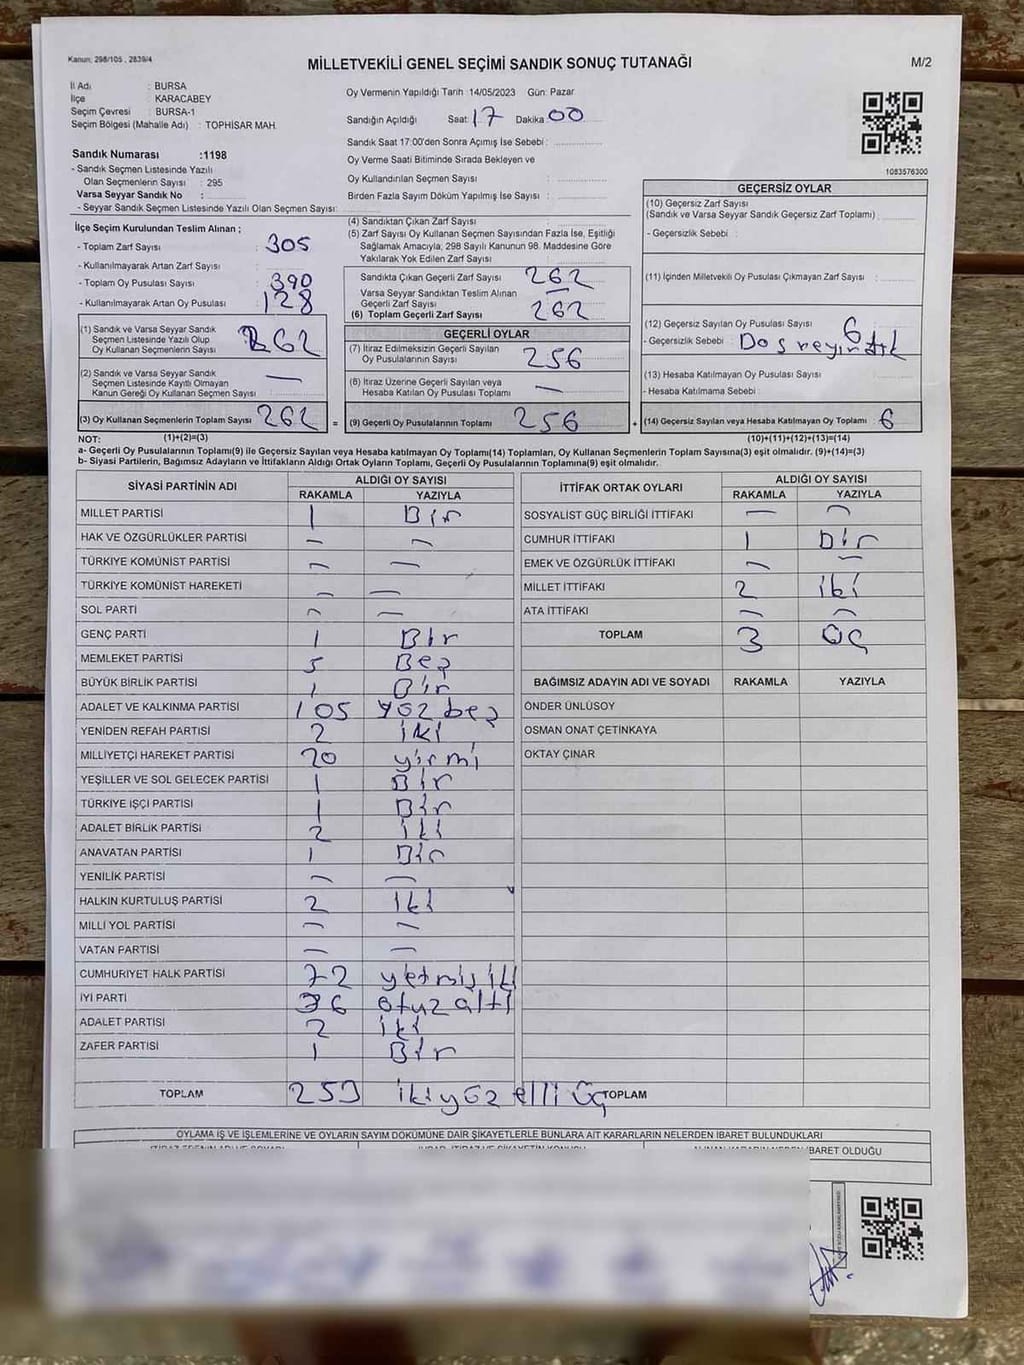 Kanun: 298/105 , 2839/4
MİLLETVEKİLİ GENEL SEÇİMİ SANDIK SONUÇ TUTANAĞI
M/2
İl Adı : BURSA
İlçe : KARACABEY
Seçim Çevresi : BURSA-1
Seçim Bölgesi (Mahalle Adı) : TOPHİSAR MAH.
Sandık Numarası :1198
- Sandık Seçmen Listesinde Yazılı
Olan Seçmenlerin Sayısı : 295
Varsa Seyyar Sandık No :
- Seyyar Sandık Seçmen Listesinde Yazılı Olan Seçmen Sayısı:
Oy Vermenin Yapıldığı Tarih 14/05/2023 Gün: Pazar
Sandığın Açıldığı Saat: 17 Dakika: 00
Sandık Saat 17:00'den Sonra Açımış İse Sebebi :
Oy Verme Saati Bitiminde Sırada Bekleyen ve
Oy Kullandırılan Seçmen Sayısı :
Birden Fazla Sayım Döküm Yapılmış İse Sayısı :
1083576300
İlçe Seçim Kurulundan Teslim Alınan ;
- Toplam Zarf Sayısı : 305
- Kullanılmayarak Artan Zarf Sayısı :
- Toplam Oy Pusulası Sayısı : 390
- Kullanılmayarak Artan Oy Pusulası : 128
(1) Sandık ve Varsa Seyyar Sandık
Seçmen Listesinde Yazılı Olup
Oy Kullanan Seçmenlerin Sayısı 262
(2) Sandık ve Varsa Seyyar Sandık
Seçmen Listesinde Kayıtlı Olmayan
Kanun Gereği Oy Kullanan Seçmen Sayısı : —
(3) Oy Kullanan Seçmenlerin Toplam Sayısı 262 =
(1)+(2)=(3)
(4) Sandıktan Çıkan Zarf Sayısı :
(5) Zarf Sayısı Oy Kullanan Seçmen Sayısından Fazla İse, Eşitliği
Sağlamak Amacıyla; 298 Sayılı Kanunun 98. Maddesine Göre
Yakılarak Yok Edilen Zarf Sayısı :
Sandıkta Çıkan Geçerli Zarf Sayısı 262
Varsa Seyyar Sandıktan Teslim Alınan
Geçerli Zarf Sayısı —
(6) Toplam Geçerli Zarf Sayısı 262
GEÇERLİ OYLAR
(7) İtiraz Edilmeksizin Geçerli Sayılan
Oy Pusulalarının Sayısı : 256
(8) İtiraz Üzerine Geçerli Sayılan veya
Hesaba Katılan Oy Pusulası Toplamı : —
(9) Geçerli Oy Pusulalarının Toplamı 256 +
GEÇERSİZ OYLAR
(10) Geçersiz Zarf Sayısı
(Sandık ve Varsa Seyyar Sandık Geçersiz Zarf Toplamı) :
- Geçersizlik Sebebi :
(11) İçinden Milletvekili Oy Pusulası Çıkmayan Zarf Sayısı :
(12) Geçersiz Sayılan Oy Pusulası Sayısı : 6
- Geçersizlik Sebebi :
(13) Hesaba Katılmayan Oy Pusulası Sayısı :
- Hesaba Katılmama Sebebi :
(14) Geçersiz Sayılan veya Hesaba Katılmayan Oy Toplamı 6
(10)+(11)+(12)+(13)=(14)
NOT:
a- Geçerli Oy Pusulalarının Toplamı(9) ile Geçersiz Sayılan veya Hesaba Katılmayan Oy Toplamı(14) Toplamları, Oy Kullanan Seçmenlerin Toplam Sayısına(3) eşit olmalıdır. (9)+(14)=(3)
b- Siyasi Partilerin, Bağımsız Adayların ve İttifakların Aldığı Ortak Oyların Toplamı, Geçerli Oy Pusulalarının Toplamına(9) eşit olmalıdır.
SİYASİ PARTİNİN ADI ALDIĞI OY SAYISI
RAKAMLA YAZIYLA
MİLLET PARTİSİ 1 Bir
HAK VE ÖZGÜRLÜKLER PARTİSİ — —
TÜRKİYE KOMÜNİST PARTİSİ — —
TÜRKİYE KOMÜNİST HAREKETİ — —
SOL PARTİ — —
GENÇ PARTİ 1 Bir
MEMLEKET PARTİSİ 5 Beş
BÜYÜK BİRLİK PARTİSİ 1 Bir
ADALET VE KALKINMA PARTİSİ 105 yüz beş
YENİDEN REFAH PARTİSİ 2 iki
MİLLİYETÇİ HAREKET PARTİSİ 20 yirmi
YEŞİLLER VE SOL GELECEK PARTİSİ 1 Bir
TÜRKİYE İŞÇİ PARTİSİ 1 Bir
ADALET BİRLİK PARTİSİ 2 iki
ANAVATAN PARTİSİ 1 Bir
YENİLİK PARTİSİ — —
HALKIN KURTULUŞ PARTİSİ 2 iki
MİLLİ YOL PARTİSİ — —
VATAN PARTİSİ — —
CUMHURİYET HALK PARTİSİ 72 yetmiş iki
İYİ PARTİ 36 otuz altı
ADALET PARTİSİ 2 iki
ZAFER PARTİSİ 1 Bir
TOPLAM 253 iki yüz elli üç
İTTİFAK ORTAK OYLARI ALDIĞI OY SAYISI
RAKAMLA YAZIYLA
SOSYALİST GÜÇ BİRLİĞİ İTTİFAKI — —
CUMHUR İTTİFAKI 1 bir
EMEK VE ÖZGÜRLÜK İTTİFAKI — —
MİLLET İTTİFAKI 2 iki
ATA İTTİFAKI — —
TOPLAM 3 üç
BAĞIMSIZ ADAYIN ADI VE SOYADI RAKAMLA YAZIYLA
ÖNDER ÜNLÜSOY
OSMAN ONAT ÇETİNKAYA
OKTAY ÇINAR
TOPLAM
OYLAMA İŞ VE İŞLEMLERİNE VE OYLARIN SAYIM DÖKÜMÜNE DAİR ŞİKAYETLERLE BUNLARA AİT KARARLARIN NELERDEN İBARET BULUNDUKLARI
İBARET OLDUĞU